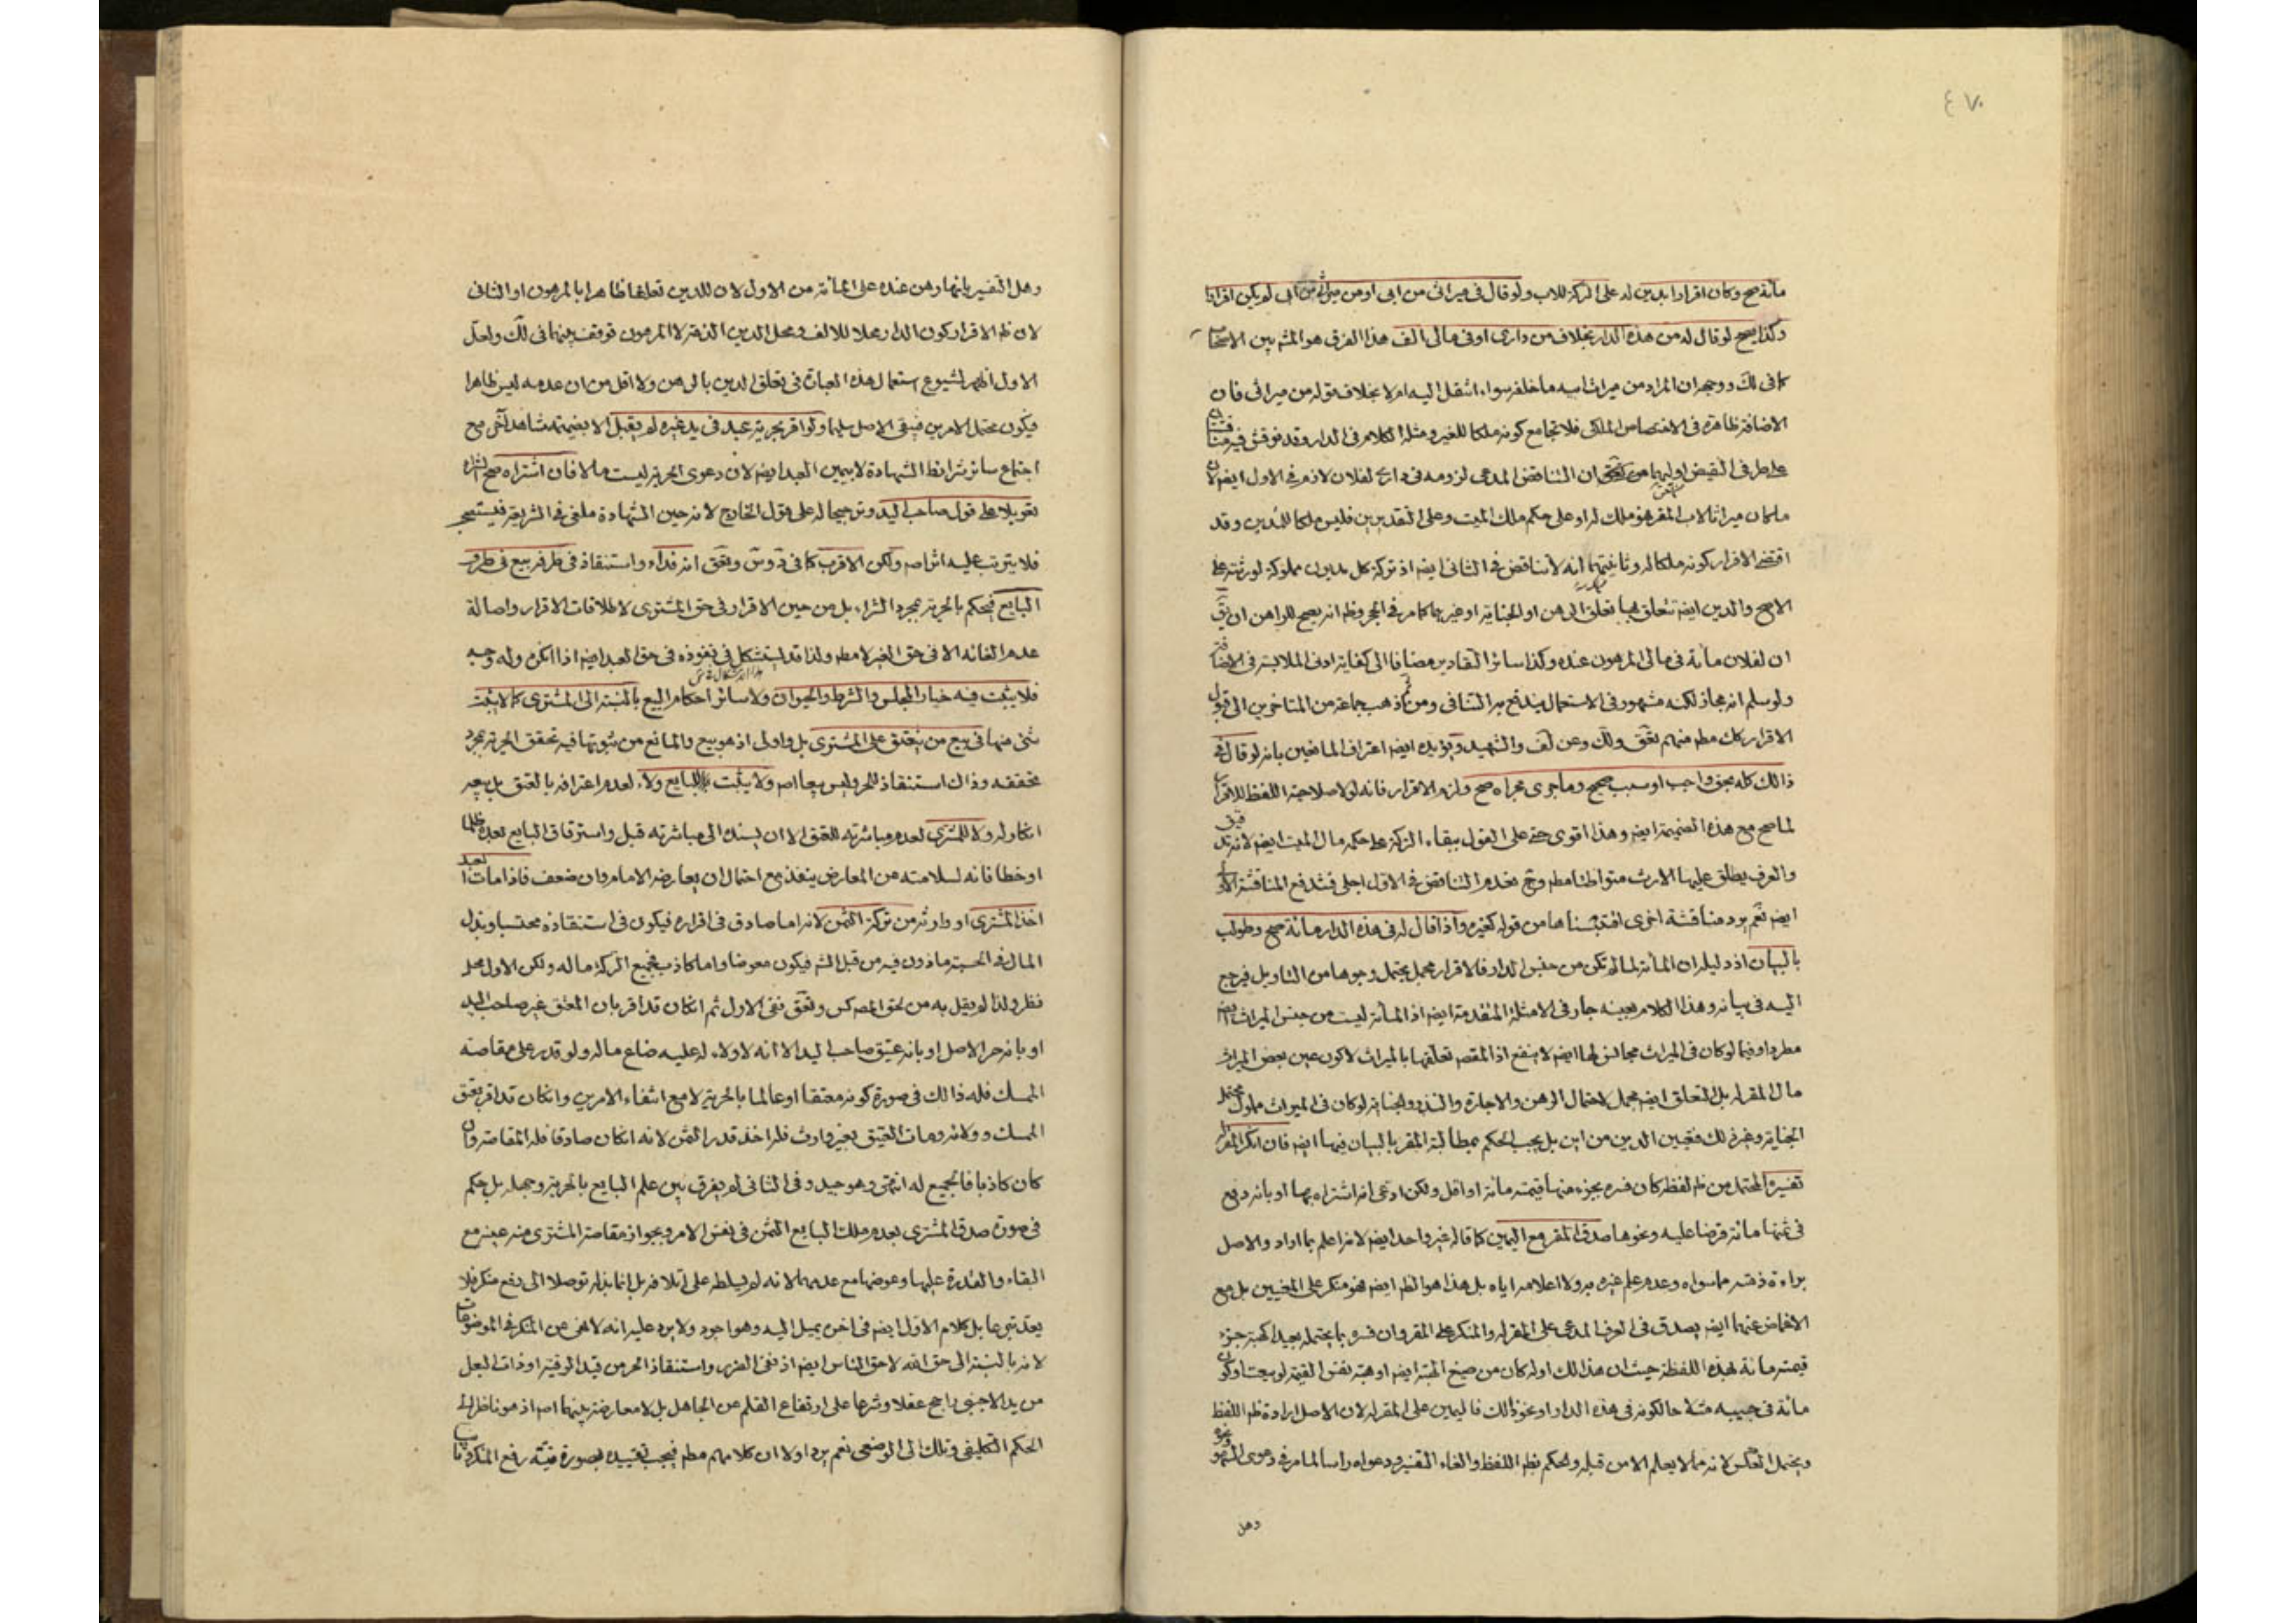 ٤٧٠
مائة صح وكان اقرارا بدين له على التركة للاب ولو قال فى ميراثى من ابى او من ميراثى من ابى لم يكن اقرارا
وكذا يصح لو قال له من هذه الدار بخلاف من دارى او فى مالى الف هذا الفرق هو المشه بين الاصحاب
كما فى لك ووجهه ان المراد من ميراث ابيه ما خلفه سواء انتقل اليه ام لا بخلاف قوله من ميراثى فان
الاضافة ظاهرة فى الاختصاص الملكى فلا تجامع كونه ملكا للغير ومثله الكلام فى الدار وقد نوقش فيه
على طرفى النقيض اوليهما من ان التناقض المدعى لزومه فى دارى لفلان لازم فى الاول ايضا لان
ما كان ميراثا لاب المقر فهو ملك له او على حكم ملك الميت وعلى التقديرين فليس ملكا للمدين وقد
اقتضى الاقرار كونه ملكا له وثانيتهما انه لا تناقض فى الثانى ايضا اذ تركة كل مديون مملوكة لورثته على
الاصح والدين ايضا تتعلق بها تعلق الرهن او الجناية او غيرهما كما مر فى الحجر وظ انه يصح للراهن ان يق
ان لفلان مائة فى مالى المرهون عنده وكذا سائر التقادير مضافا الى كفاية ادنى الملابسة فى الاضافة
ولو سلم انه مجاز لكنه مشهور فى الاستعمال يندفع به التنافى ومن ثم ذهب جماعة من المتاخرين الى قبول
الاقرار كك مط منهم نفق ولك وعن لف والشهيد ويؤيده ايضا اعتراف المانعين بانه لو قال فى
ذالك كله بحق واجب او سبب صحيح وما جرى مجراه صح ولزم الاقرار فانه لولا صلاحية اللفظ للاقرار
لما صح مع هذه الضميمة ايضا وهذا اقوى حتى على القول ببقاء التركة على حكم مال الميت ايضا لانه
والعرف يطلق عليها الارث متواطئا مط وح فعدم التناقض فى الاول اجلى فتندفع المناقشة الاولى
ايضا نعم يرد مناقشة اخرى اقتبسناها من قوله كغيره واذا قال له فى هذه الدار مائة صح وطولب
بالبيان اذ دليله ان المائة لما لم تكن من جنس الدار فالاقرار مجمل يحتمل وجوها من التاويل فيرجع
اليه فى بيانه وهذا الكلام بعينه جار فى الامثلة المتقدمة ايضا اذ المائة ليست من جنس الميراث ايضا
مطردا وفيما لو كان فى الميراث مجانس لها ايضا لا ينفع اذ المقصد تعلقها بالميراث لا كون عين بعض الميراث
مال المقر له بل التعلق ايضا مجمل لاحتمال الرهن والاجارة والنذر والجناية لو كان فى الميراث مملوك
الجناية وغير ذلك فتعيين الدين من اين بل يجب الحكم بمطالبة المقر بالبيان فيها ايضا فان انكر المقر له
تفسيره المحتمل من ظ لفظه كان فسره بجزء منها قيمته مائة او اقل ولكن ادعى انه اشتراه بها او بانه دفع
فى ثمنها مائة قرضا عليه ونحوها صدق المقر مع اليمين كما قاله غير واحد ايضا لانه اعلم بما اراد والاصل
براءة ذمته مما سواه وعدم علم غيره به ولا اعلامه اياه بل هذا هو الظ ايضا فهو منكر على المعنيين بل مع
الاغماض عنهما ايضا يصدق فى العرف المدعى على المقر له والمنكر على المقر وان فسره بما يحتمله بعيدا كهبة جزء
قيمته مائة لهذه اللفظة حيث ان هذا لك اوله كان من صيغ الهبة ايضا او هبة نفس القيمة لو بيعت او كون
مائة فى جيبه مثلا حالكونه فى هذه الدار او نحو ذلك فاليمين على المقر له لان الاصل ارادة ظ اللفظ
ويحتمل العكس لانه مما لا يعلم الا من قبله والحكم بظ اللفظ والغاء التفسير ودعواه راسا لما مر فى دعوى السهو
وهل
وهل التفسير بانها رهن عنده على المائة من الاول لان للدين تعلقا ظاهرا بالمرهون او الثانى
لان ظ الاقرار كون الدار محلا للالف ومحل الدين الذمة لا المرهون توقف بينهما فى لك ولعل
الاول اظهر لشيوع استعمال هذه العبارة فى تعلق الدين بالرهن ولا اقل من ان عدمه ليس ظاهرا
فيكون محتمل الامرين فيبقى الاصل سليما ولو اقر بحرية عبد فى يد غيره لم يقبل الا بضميمة شاهد آخر مع
اجتماع سائر شرائط الشهادة لا بيمين العبد ايضا لان دعوى الحرية ليست مالا فان اشتراه صح الشراء
تعويلا على قول صاحب اليد وترجيحا له على قول الخارج لانه حين الشهادة ملغى فى الشريعة فيستصحب
فلا يترتب عليه اثر اصا ولكن الاقرب كما فى د وس ونفق انه فداء واستنقاذ فى طرفه بيع فى طرف
البايع فيحكم بالحرية بمجرد الشراء بل من حين الاقرار فى حق المشترى لاطلاقات الاقرار واصالة
عدم الغائه الا فى حق الغير لا مط ولذا قد يستشكل فى نفوذه فى حق العبد ايضا اذا انكره وله وجه
فلا يثبت فيه خيار المجلس والشرط والحيوان ولا سائر احكام البيع بالنسبة الى المشترى كما لا يثبت
شئ منها فى بيع من ينعتق على المشترى بل واولى اذ هو بيع والمانع من ثبوتها فيه تحقق الحرية بمجرد
تحققه وذاك استنقاذ للحر وليس بيعا اصا ولا يثبت للبايع ولاء لعدم اعترافه بالعتق بل بعد
انكاره له ولا للمشترى لعدم مباشرته للعتق الا ان يسنده الى مباشرته قبل واسترقاق البايع بعده ظلما
او خطا فانه لسلامته عن المعارض ينفذ مع احتمال ان يعارضه الامام وان ضعف فاذا مات العبد
اخذ المشترى او وارثه من تركة الثمن لانه اما صادق فى اقراره فيكون فى استنقاذه محتسبا وبذل
المال فى الحسبة ماذون فيه من قبل الشه فيكون معوضا واما كاذب فجميع التركة ماله ولكن الاول محل
نظر ولذا لم يقل به من لحق المص كس ونفق ففى الاول ثم انكان قد اقر بان المعتق غير صاحب اليد
او بانه حر الاصل او بانه عتيق صاحب اليد الا انه لا ولاء له عليه ضاع ماله ولو قدر على مقاصة
الممسك فله ذالك فى صورة كونه معتقا او عالما بالحرية لا مع انتفاء الامرين وانكان قد اقر بعتق
الممسك وولائه ومات العتيق بغير وارث فله اخذ قدر الثمن لانه انكان صادقا فله المقاصة وان
كان كاذبا فالجميع له انتهى وهو جيد وفى الثانى لم يفرق بين علم البايع بالحرية وجهله بل حكم
فى صورة صدق المشترى بعدم ملك البايع الثمن فى نفس الامر وبجواز مقاصة المشترى منه عينه مع
البقاء والقدرة عليها وعوضها مع عدمها لانه لم يسلطه على اتلافه بل انما بذله توصلا الى رفع منكر فلا
يعد تبرعا بل كلام الاول ايضا فى اخره يميل اليه وهو اجود ولا يرد عليه انه لا نهى عن المنكر فى الموضوعات
لانه بالنسبة الى حق الله لا حق الناس ايضا اذ نفى الضرر واستنقاذ الحر من قيد الرقية او ذات البعل
من يد الاجنبى راجح عقلا وشرعا على ارتفاع القلم عن الجاهل بل لا معارضة بينهما اصا اذ هو ناظر الى
الحكم التكليفى وتلك الى الوضعى نعم يرد اولا ان كلامهم مط فيجب تقييده بصورة نية رفع المنكر